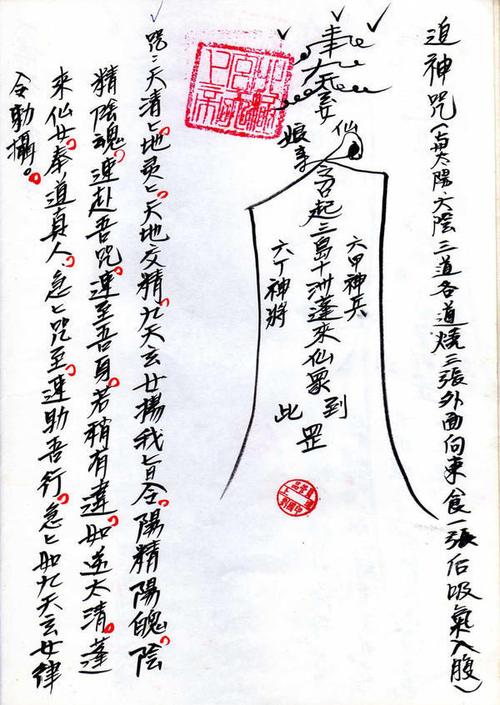 迫神咒(与太陽、太陰三道各道燒三張外面向東食一張后吸氣入腹)
奉九天玄女仙
娘來
召起三島十洲蓬來仙眾到此罡
六甲神兵
六丁神將
咒:天清上地灵上天地交精九天玄女揚我旨令。陽精陽魄。陰
精陰魂。速赴吾咒。速至吾身。若稍有違。如逆太清。蓬
來仙女。奉道真人。急上咒至。速助吾行。急上如九天玄女律
令勅攝。